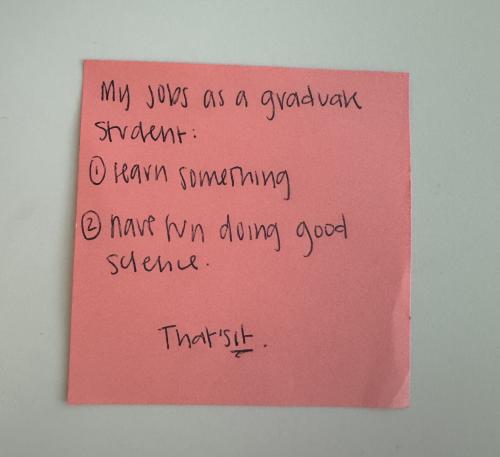 My jobs as a graduate
student:
① learn something
② have fun doing good
science.
That's it.